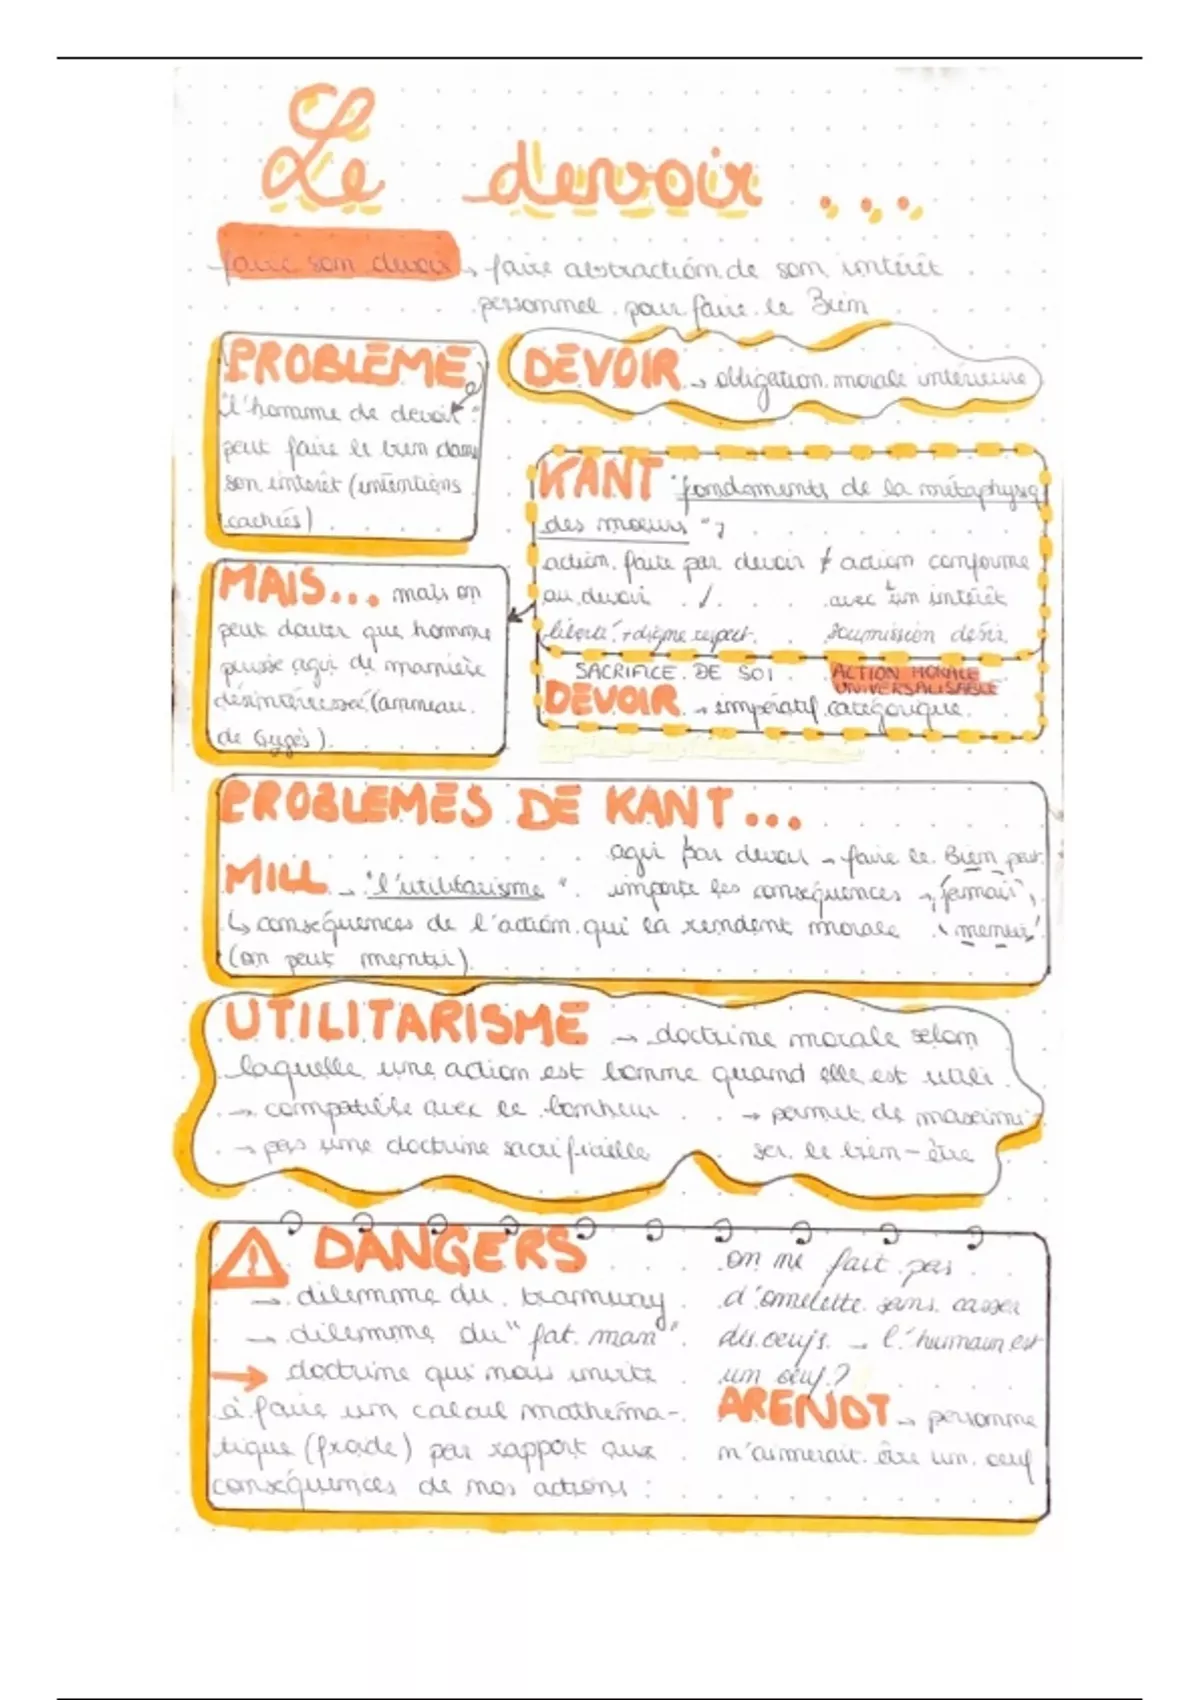 Le devoir ...
faire son devoir → faire abstraction de son intérêt
personnel pour faire le Bien
PROBLÈME
"l'homme de devoir"
peut faire le bien dans
son intérêt (intentions
cachées)
DEVOIR → obligation morale intérieure
KANT "fondements de la métaphysiq
des moeurs"
action faite par devoir ≠ action conforme
au devoir
avec un intérêt
liberté + digne respect
soumission désir
SACRIFICE DE SOI
ACTION MORALE
UNIVERSALISABLE
DEVOIR → impératif catégorique
MAIS... mais on
peut douter que homme
puisse agir de manière
désintéressée (anneau
de Gygès).
PROBLEMES DE KANT...
agir par devoir → faire le Bien peut
MILL → "l'utilitarisme"
importe les conséquences → "jamais
mentir"
↳ conséquences de l'action qui la rendent morale
(on peut mentir)
UTILITARISME → doctrine morale selon
laquelle une action est bonne quand elle est utile
→ compatible avec le bonheur
→ pas une doctrine sacrificielle
→ permet de maximi-
ser le bien-être
! DANGERS
→ dilemme du tramway
→ dilemme du "fat man"
→ doctrine qui nous invite
à faire un calcul mathéma-
tique (froide) par rapport aux
conséquences de nos actions :
on ne fait pas
d'omelette sans casser
des oeufs → l'humain est
un oeuf ?
ARENDT → personne
n'aimerait être un oeuf